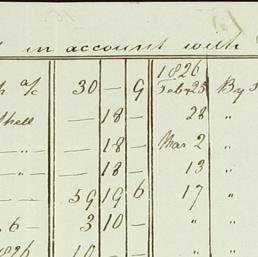 in account with
1826
a/c 30 — 9 Feb 25 By
— 18 — 28 "
— 18 — Mar 2 "
" — 18 — 13 "
— 59 19 6 17 "
6 — 3 10 — " "
1826 10 — " "